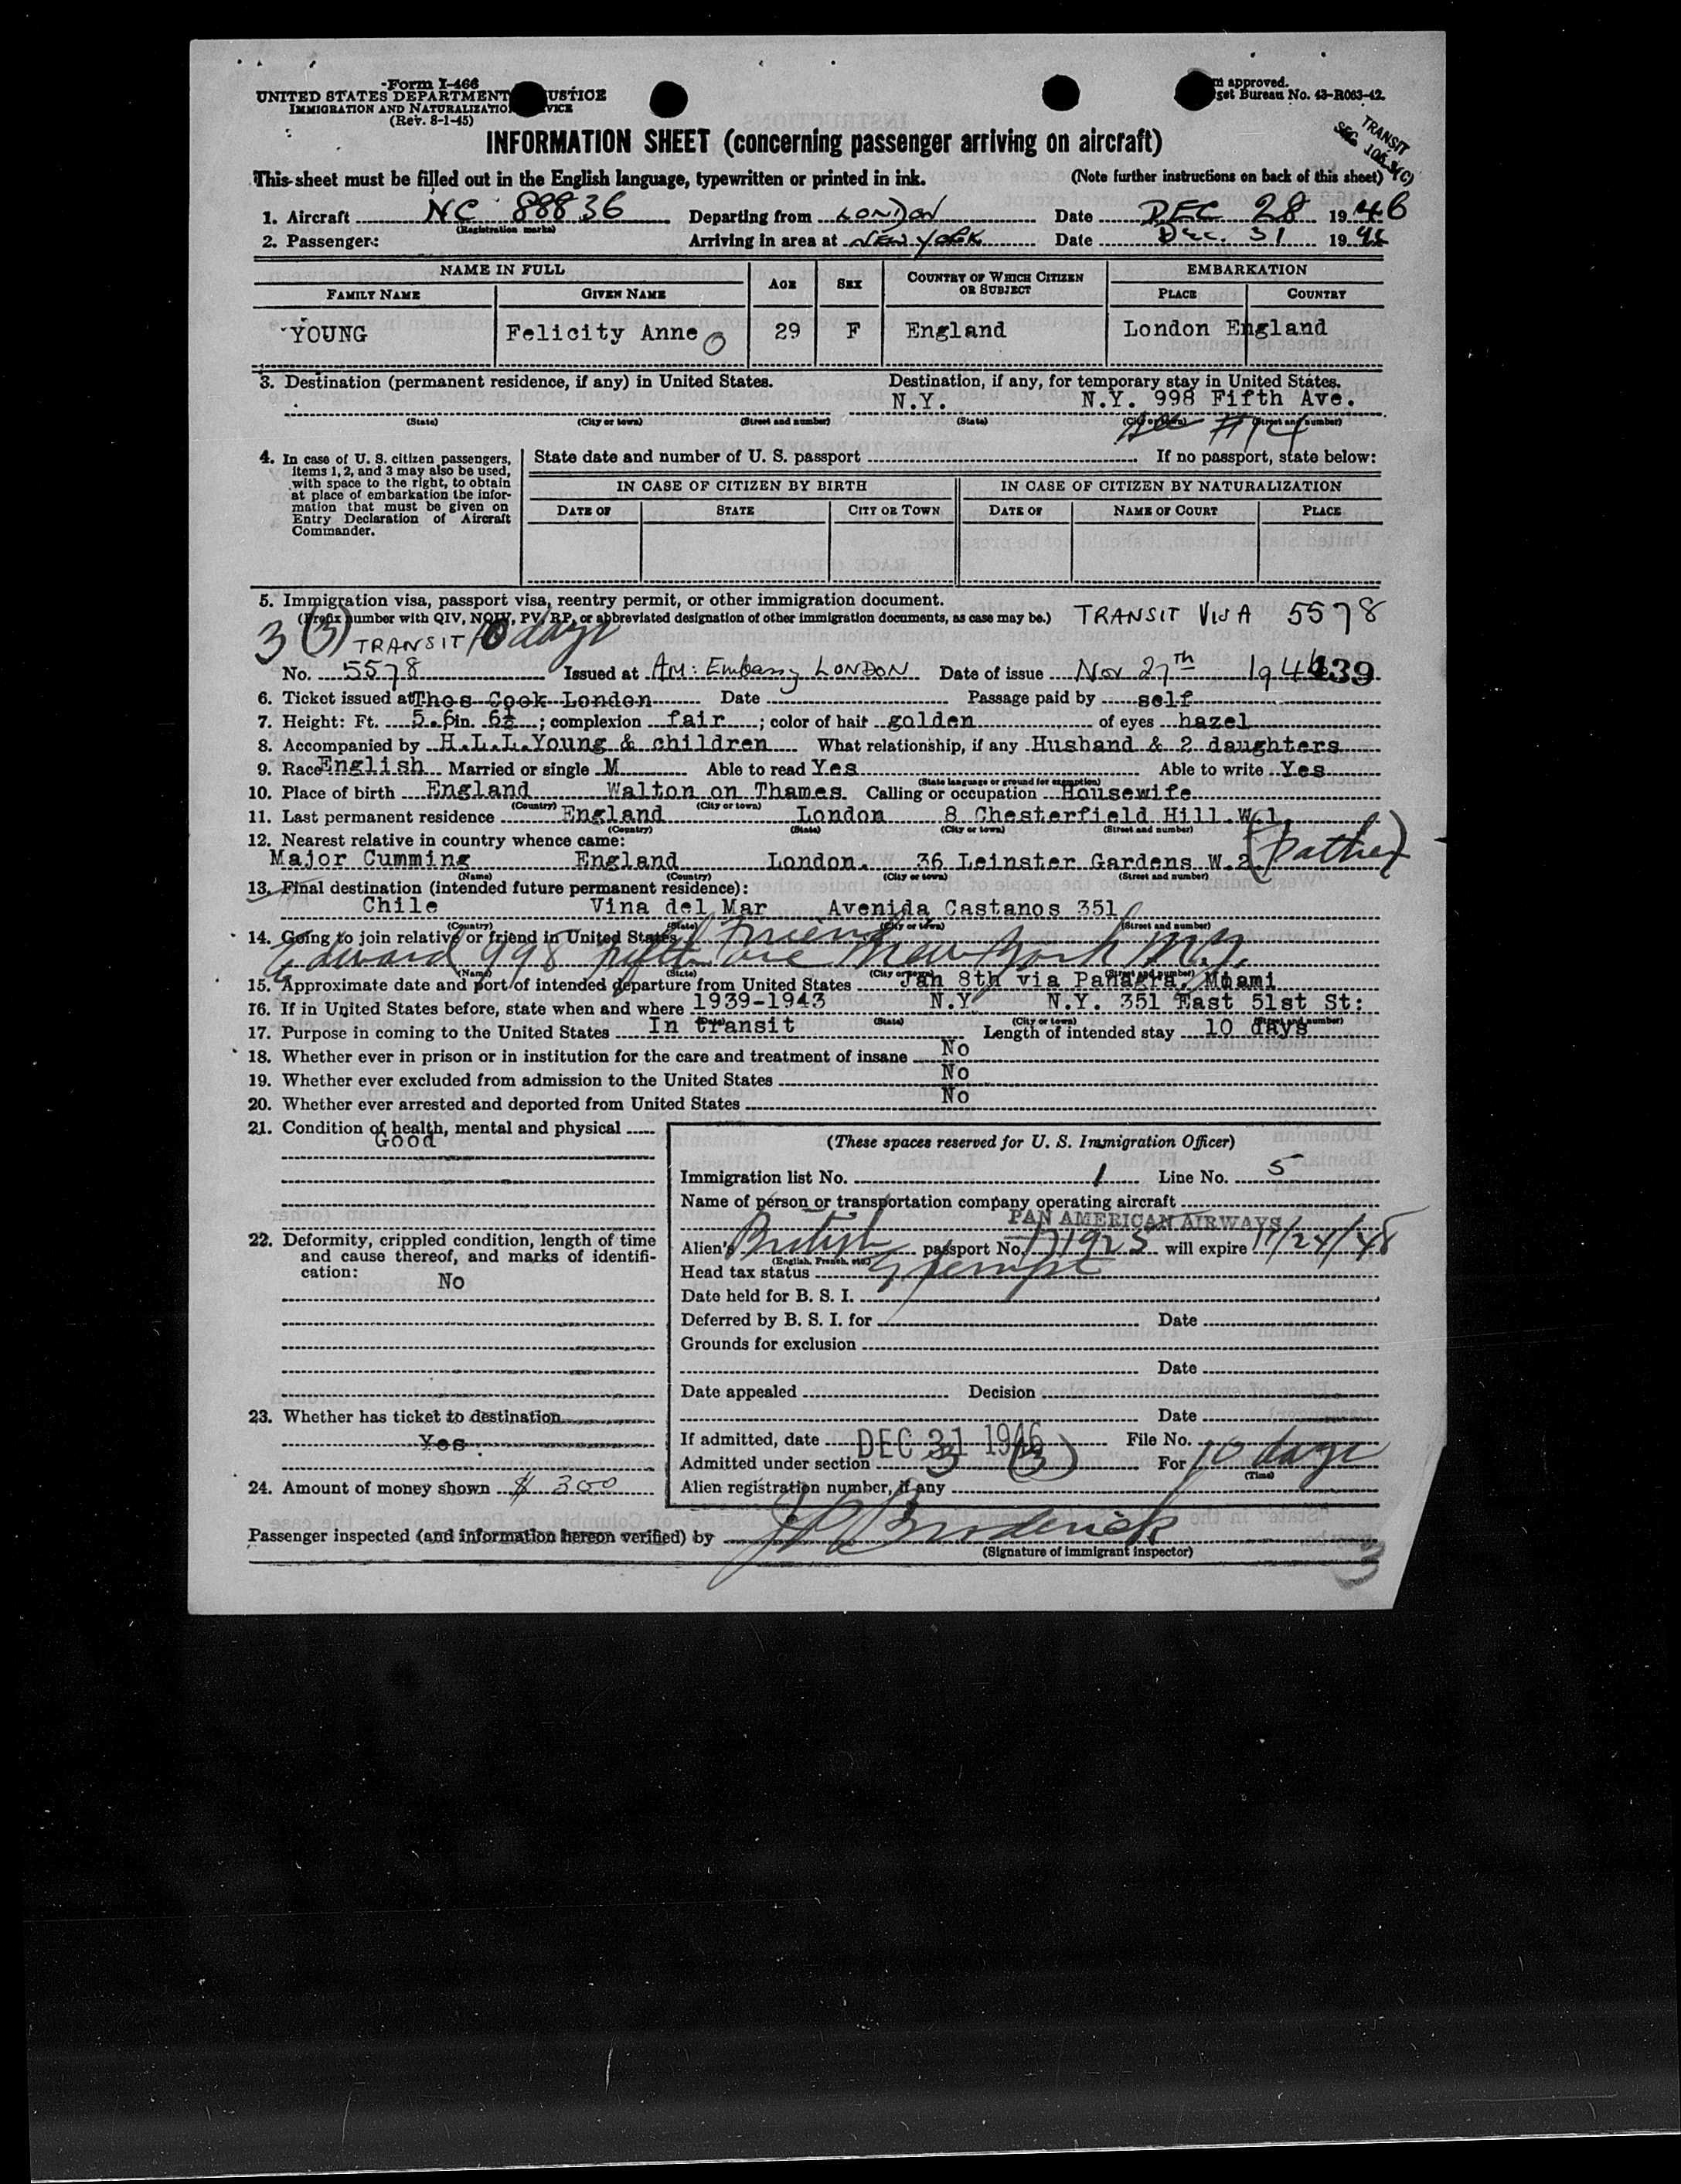 Form I-466
UNITED STATES DEPARTMENT JUSTICE
IMMIGRATION AND NATURALIZATION SERVICE
(Rev. 8-1-45)
approved.
Bureau No. 43-R063-42.
INFORMATION SHEET (concerning passenger arriving on aircraft)
TRANSIT
SEC
This sheet must be filled out in the English language, typewritten or printed in ink. (Note further instructions on back of this sheet)
1. Aircraft NC 88836 Departing from LONDON Date DEC 28 1946
(Registration marks)
2. Passenger: Arriving in area at NEW YORK Date Dec. 31 1946
NAME IN FULL AGE SEX COUNTRY OF WHICH CITIZEN OR SUBJECT EMBARKATION
FAMILY NAME GIVEN NAME PLACE COUNTRY
YOUNG Felicity Anne 29 F England London England
3. Destination (permanent residence, if any) in United States. Destination, if any, for temporary stay in United States.
N.Y. N.Y. 998 Fifth Ave.
(State) (City or town) (Street and number) (State) (City or town) (Street and number)
See #14
4. In case of U. S. citizen passengers, items 1, 2, and 3 may also be used, with space to the right, to obtain at place of embarkation the information that must be given on Entry Declaration of Aircraft Commander.
State date and number of U. S. passport If no passport, state below:
IN CASE OF CITIZEN BY BIRTH IN CASE OF CITIZEN BY NATURALIZATION
DATE OF STATE CITY OR TOWN DATE OF NAME OF COURT PLACE
5. Immigration visa, passport visa, reentry permit, or other immigration document.
(Prefix number with QIV, NQIV, PV, RP, or abbreviated designation of other immigration documents, as case may be.) TRANSIT VISA 5578
3 (3) TRANSIT 10 days
No. 5578 Issued at AM: Embassy LONDON Date of issue Nov 27th 1946 139
6. Ticket issued at Thos Cook London Date Passage paid by self
7. Height: Ft. 5. 6in. 6½ ; complexion fair ; color of hair golden of eyes hazel
8. Accompanied by H.L.L.Young & children What relationship, if any Husband & 2 daughters
9. Race English Married or single M Able to read Yes Able to write Yes
(State language or ground for exemption)
10. Place of birth England Walton on Thames Calling or occupation Housewife
(Country) (City or town)
11. Last permanent residence England London 8 Chesterfield Hill.W.1.
(Country) (State) (City or town) (Street and number)
12. Nearest relative in country whence came:
Major Cumming England London. 36 Leinster Gardens W.2. (father)
(Name) (Country) (City or town) (Street and number)
13. Final destination (intended future permanent residence):
Chile Vina del Mar Avenida Castanos 351
(Country) (State) (City or town) (Street and number)
14. Going to join relative or friend in United States Friend
Edward 998 fifth ave New York N.Y.
(Name) (State) (City or town) (Street and number)
15. Approximate date and port of intended departure from United States Jan 8th via Panagra, Miami
16. If in United States before, state when and where 1939-1943 N.Y N.Y. 351 East 51st St:
(Date) (State) (City or town) (Street and number)
17. Purpose in coming to the United States In transit Length of intended stay 10 days
18. Whether ever in prison or in institution for the care and treatment of insane No
19. Whether ever excluded from admission to the United States No
20. Whether ever arrested and deported from United States No
21. Condition of health, mental and physical
Good
22. Deformity, crippled condition, length of time and cause thereof, and marks of identification:
No
23. Whether has ticket to destination
Yes
24. Amount of money shown $ 300
(These spaces reserved for U. S. Immigration Officer)
Immigration list No. 1 Line No. 5
Name of person or transportation company operating aircraft
PAN AMERICAN AIRWAYS
Alien's British passport No. 171925 will expire 11/24/48
(English, French, etc.)
Head tax status Exempt
Date held for B. S. I.
Deferred by B. S. I. for Date
Grounds for exclusion
Date
Date appealed Decision
Date
If admitted, date DEC 31 1946 File No.
Admitted under section 3 (3) For 10 days
(Time)
Alien registration number, if any
Passenger inspected (and information hereon verified) by Broderick
(Signature of immigrant inspector)
3